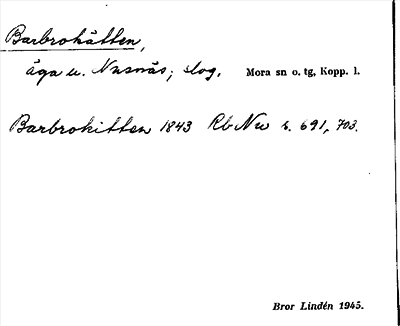 Barbrohätten,
äga u. Nusnäs; slog. Mora sn o. tg, Kopp. l.
Barbrohitten 1843 Rb Nu s. 691, 703.
Bror Lindén 1945.